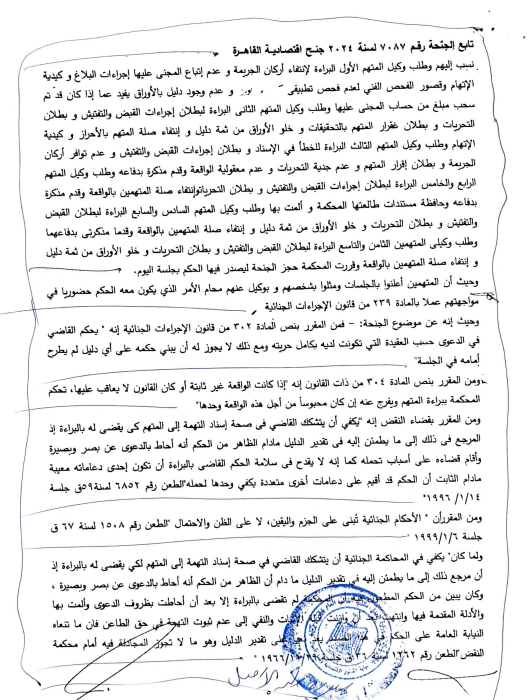 تابع الجنحة رقم ٧٠٨٧ لسنة ٢٠٢٤ جنح اقتصادية القاهرة
نسب إليهم وطلب وكيل المتهم الأول البراءة لإنتفاء أركان الجريمة و عدم إتباع المجنى عليها إجراءات البلاغ و كيدية
الإتهام وقصور الفحص الفني لعدم فحص تطبيقى و عدم وجود دليل بالأوراق يفيد عما إذا كان قد تم
سحب مبلغ من حساب المجنى عليها وطلب وكيل المتهم الثانى البراءة لبطلان إجراءات القبض والتفتيش و بطلان
التحريات و بطلان غقرار المتهم بالتحقيقات و خلو الأوراق من ثمة دليل و إنتفاء صلة المتهم بالأحراز و كيدية
الإتهام وطلب وكيل المتهم الثالث البراءة للخطأ في الإسناد و بطلان إجراءات القبض والتفتيش و عدم توافر أركان
الجريمة و بطلان إقرار المتهم و عدم جدية التحريات و عدم معقولية الواقعة وقدم مذكرة بدفاعه وطلب وكيل المتهم
الرابع والخامس البراءة لبطلان إجراءات القبض والتفتيش و بطلان التحرياتوإنتفاء صلة المتهمين بالواقعة وقدم مذكرة
بدفاعه وحافظة مستندات طالعتها المحكمة و ألمت بها وطلب وكيل المتهم السادس والسابع البراءة لبطلان القبض
والتفتيش و بطلان التحريات و خلو الأوراق من ثمة دليل و إنتفاء صلة المتهمين بالواقعة وقدما مذكرتى بدفاعهما
وطلب وكيلى المتهمين الثامن والتاسع البراءة لبطلان القبض والتفتيش و بطلان التحريات و خلو الأوراق من ثمة دليل
و إنتفاء صلة المتهمين بالواقعة وقررت المحكمة حجز الجنحة ليصدر فيها الحكم بجلسة اليوم.
وحيث أن المتهمين أعلنوا بالجلسات ومثلوا بشخصهم و بوكيل عنهم محام الأمر الذي يكون معه الحكم حضوريا في
مواجهتهم عملا بالمادة ٢٣٩ من قانون الإجراءات الجنائية
وحيث إنه عن موضوع الجنحة: - فمن المقرر بنص المادة ٣٠٢ من قانون الإجراءات الجنائية إنه "يحكم القاضي
في الدعوى حسب العقيدة التي تكونت لديه بكامل حريته ومع ذلك لا يجوز له أن يبني حكمه على أي دليل لم يطرح
أمامه في الجلسة"
ومن المقرر بنص المادة ٣٠٤ من ذات القانون إنه "إذا كانت الواقعة غير ثابتة أو كان القانون لا يعاقب عليها، تحكم
المحكمة ببراءة المتهم ويفرج عنه إن كان محبوساً من أجل هذه الواقعة وحدها"
ومن المقرر بقضاء النقض إنه "يكفي أن يتشكك القاضي فى صحة إسناد التهمة إلى المتهم كى يقضى له بالبراءة إذ
المرجع فى ذلك إلى ما يطمئن إليه فى تقدير الدليل مادام الظاهر من الحكم أنه أحاط بالدعوى عن بصر وبصيرة
وأقام قضاءه على أسباب تحمله كما إنه لا يقدح فى سلامة الحكم القاضى بالبراءة أن تكون إحدى دعاماته معيبة
مادام الثابت أن الحكم قد أقيم على دعامات أخرى متعددة يكفي وحدها لحمله"الطعن رقم ٦٨٥٢ لسنة ٥٩ق جلسة
١٤ /١ /١٩٩٦"
ومن المقررأن " الأحكام الجنائية تُبنى على الجزم واليقين، لا على الظن والاحتمال "الطعن رقم ١٥٠٨ لسنة ٦٧ ق
جلسة ١٩٩٩/١/٦
ولما كان" يكفي في المحاكمة الجنائية أن يتشكك القاضي في صحة إسناد التهمة إلى المتهم لكي يقضى له بالبراءة إذ
أن مرجع ذلك إلى ما يطمئن إليه في تقدير الدليل ما دام أن الظاهر من الحكم أنه أحاط بالدعوى عن بصر وبصيرة ،
وكان يبين من الحكم المطعون فيه أن المحكمة لم تقضى بالبراءة إلا بعد أن أحاطت بظروف الدعوى وألمت بها
والأدلة المقدمة فيها وانتهت بعد أن وازنت أدلة الإثبات والنفي إلى عدم ثبوت التهمة في حق الطاعن فان ما تنعاه
النيابة العامة على الحكم في هذا تقدير الدليل وهو ما لا تجوز المجادلة فيه أمام محكمة
النقض"الطعن رقم ١٢٦٢ لسنة ٣٦ ق جلسة